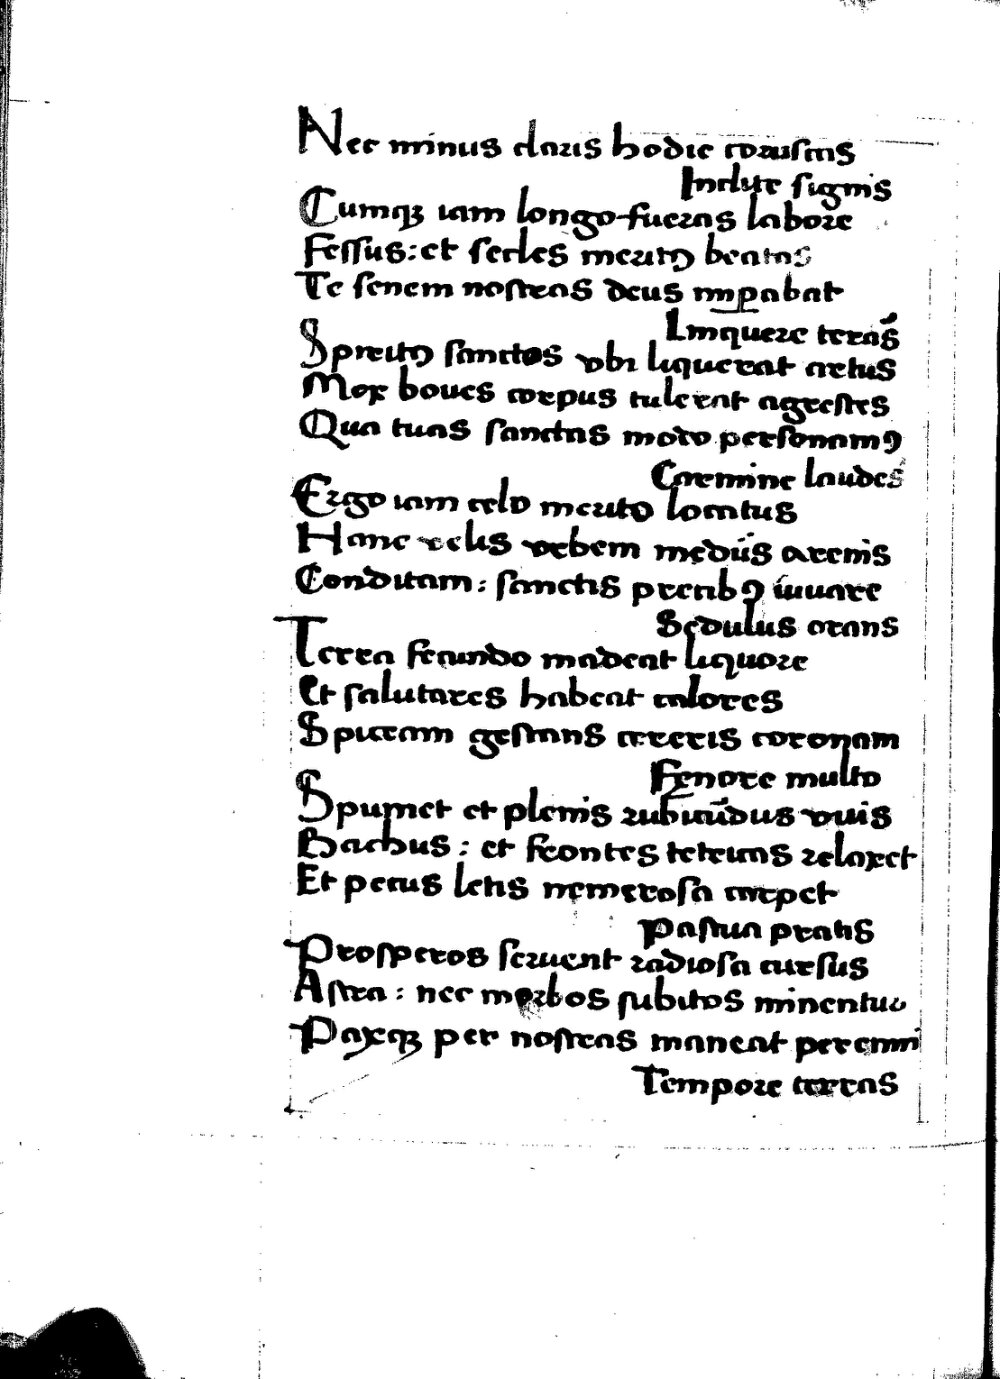 Nec minus claris hodie coruscas
Inclite signis
Cumqꝫ iam longo fueras labore
Fessus: et secles meritꝰ beatas
Te senem nostras deus imꝑabat
Linquere terās
Spreitꝰ sanctos vbi liquerat artus
Mox boues corpus tulerat agrestes
Qua tuas sanctas modo personamꝰ
Carmine laudes
Ergo iam celo merito locatus
Hanc velis vrbem mediis arenis
Conditam: sanctis precibꝰ iuuare
Sedulus orans
Terra fecundo madeat liquore
Et salutares habeat calores
Spiceam gestans cereris coronam
Fenore multo
Spumet et plenis rubicūdus vuis
Bachus: et frontes tetricas relaxet
Et pecus letis nemerosa carpet
Pascua pratis
Prosperos seruent radiosa cursus
Astra: nec morbos subitos minentur
Paxqꝫ per nostras maneat perenni
Tempore terras